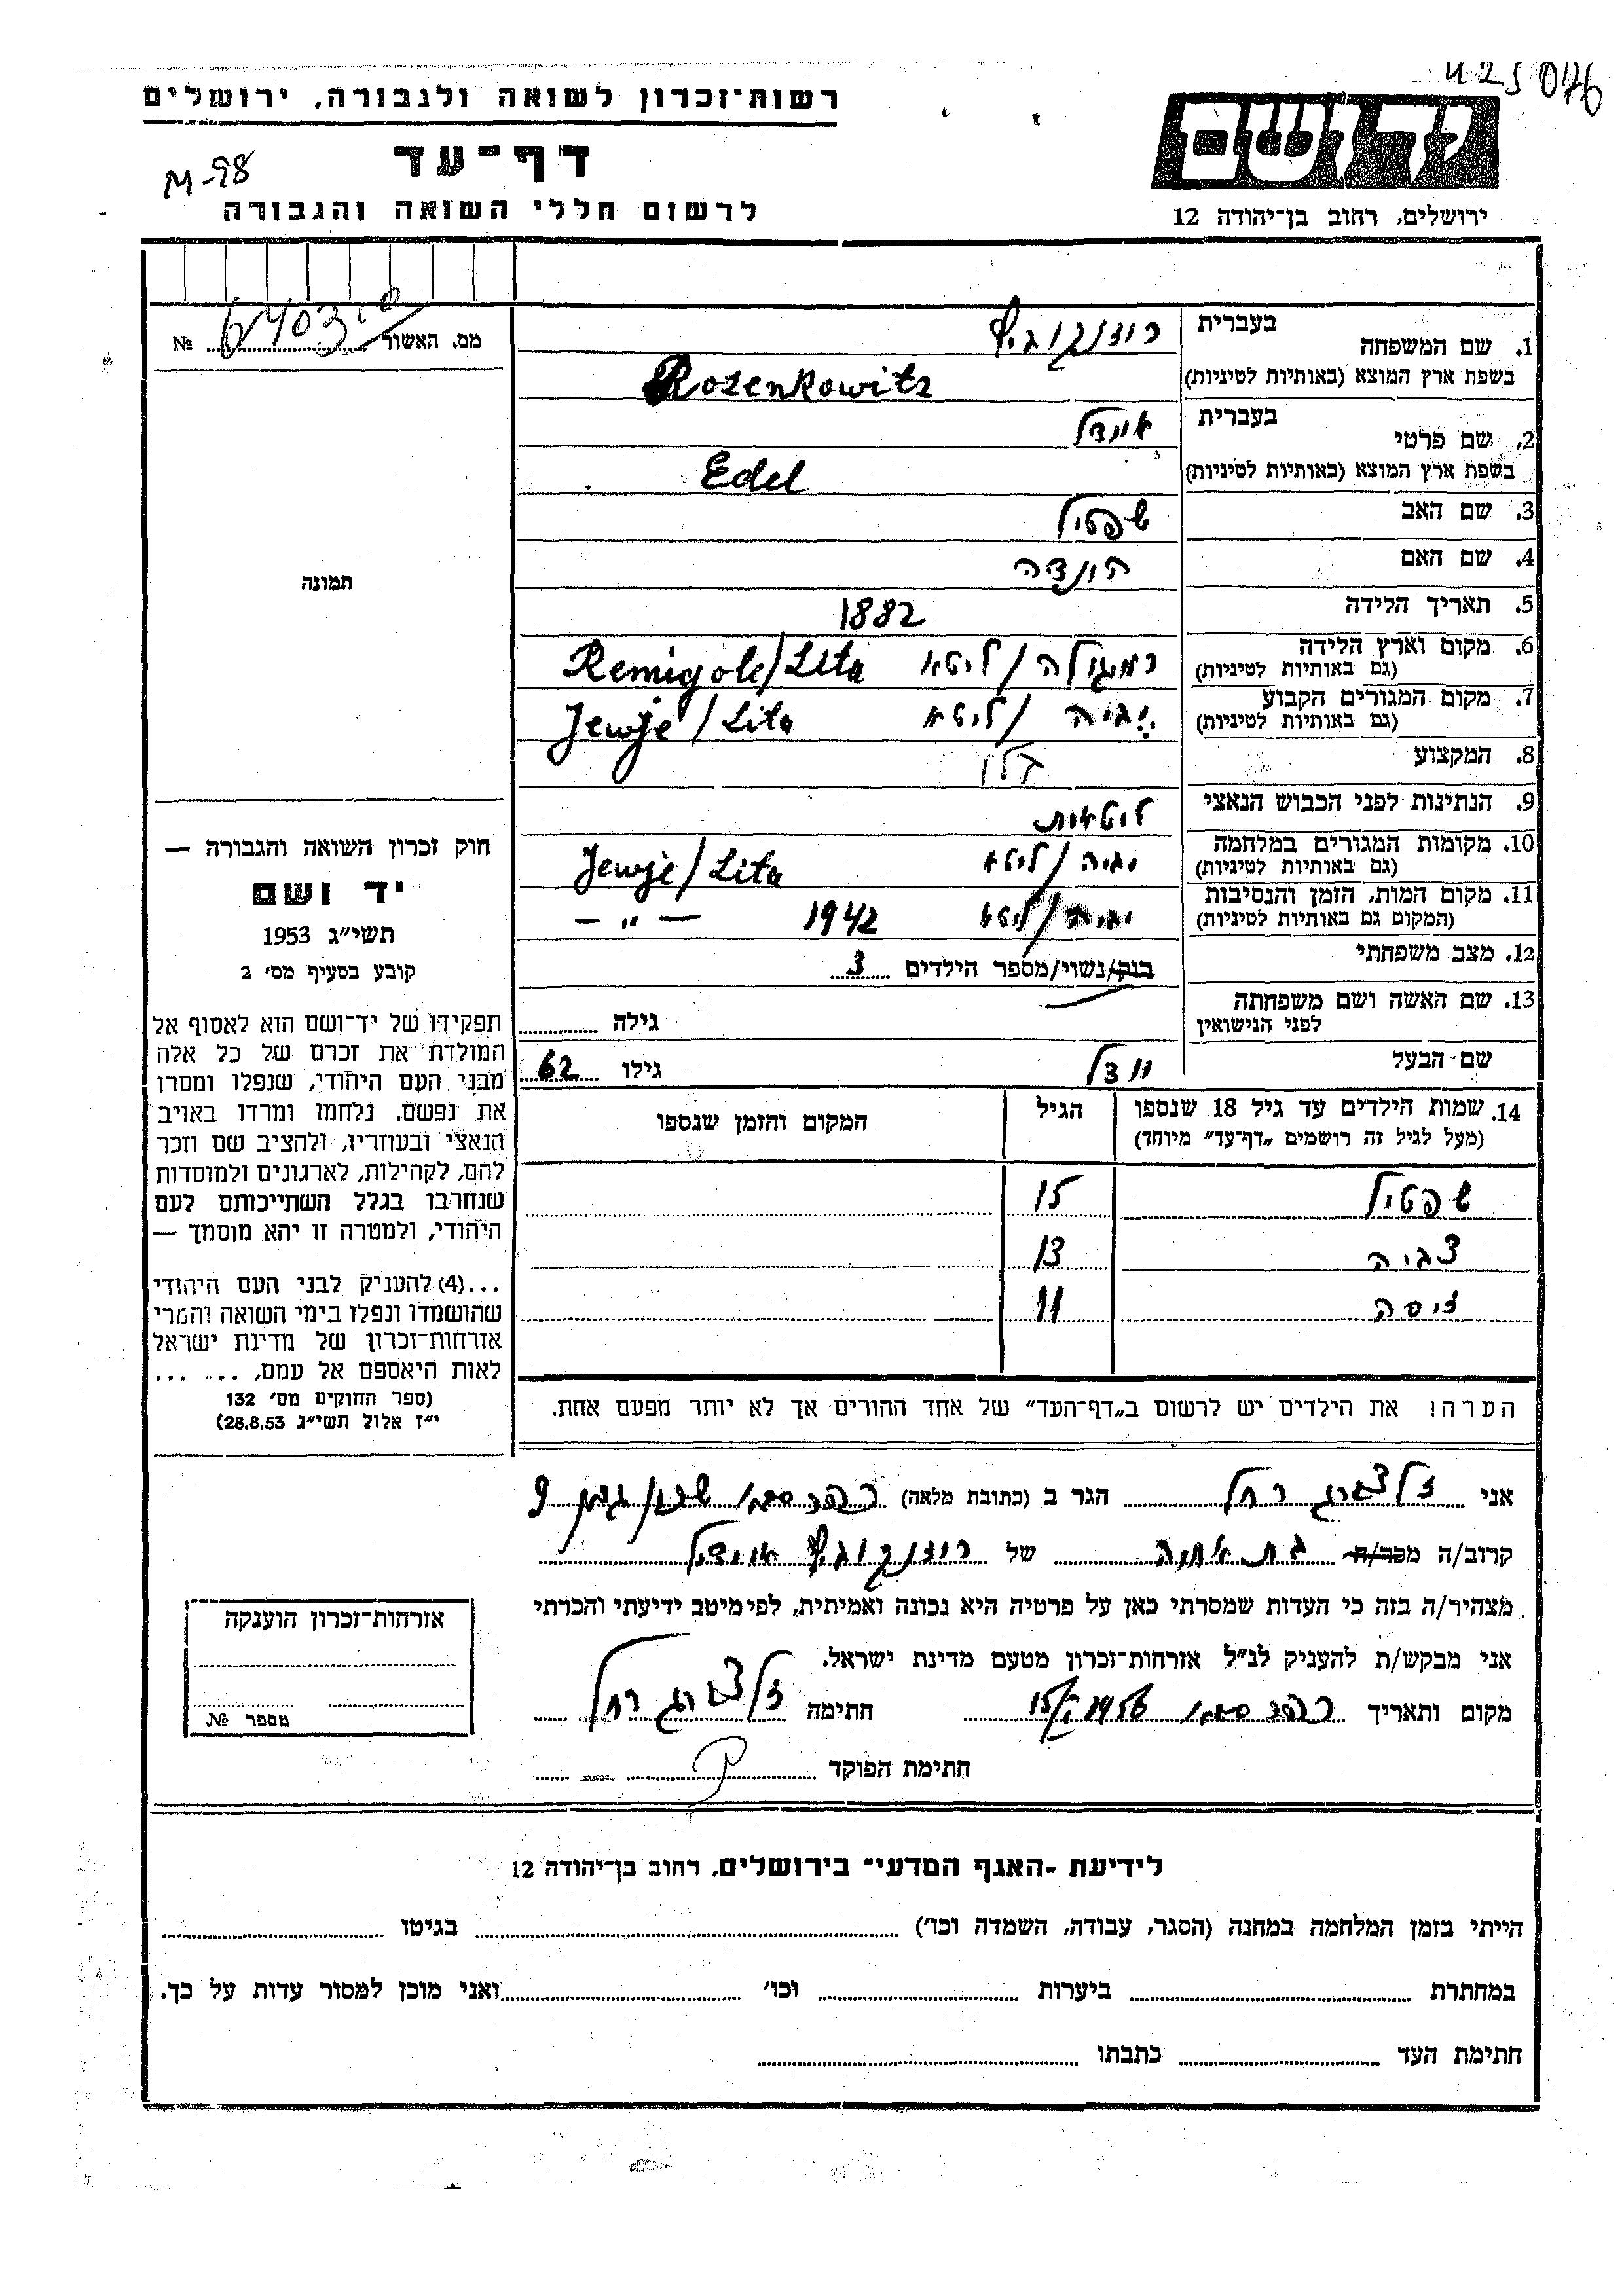 425046
רשות־זכרון לשואה ולגבורה, ירושלים
ידושם
דף־עד
M-98
לרשום חללי השואה והגבורה
ירושלים, רחוב בן־יהודה 12
מס. האשור № 
בעברית
1. שם המשפחה
רוזנקוביץ
בשפת ארץ המוצא (באותיות לטיניות)
Rozenkowitz
בעברית
2. שם פרטי
איידל
בשפת ארץ המוצא (באותיות לטיניות)
Edel
3. שם האב שפטיל
4. שם האם הונדה
תמונה
5. תאריך הלידה 1882
6. מקום וארץ הלידה
(גם באותיות לטיניות)
רמיגולה / ליטא Remigole/Lita
7. מקום המגורים הקבוע
(גם באותיות לטיניות)
יגיה / ליטא Jewje/Lita
8. המקצוע
9. הנתינות לפני הכבוש הנאצי ליטאית
10. מקומות המגורים במלחמה
(גם באותיות לטיניות)
יגיה / ליטא Jewje/Lita
11. מקום המות, הזמן והנסיבות
(המקום גם באותיות לטיניות)
יגיה / ליטא 1942 — " —
12. מצב משפחתי רווק/נשוי/מספר הילדים 3
13. שם האשה ושם משפחתה
לפני הנישואין
גילה
שם הבעל וודל גילו 62
14. שמות הילדים עד גיל 18 שנספו
(מעל לגיל זה רושמים „דף־עד” מיוחד)
הגיל
המקום והזמן שנספו
שפטיל 15
צביה 13
זיסה 11
הערה! את הילדים יש לרשום ב„דף־העד” של אחד ההורים אך לא יותר מפעם אחת.
חוק זכרון השואה והגבורה —
יד ושם
תשי״ג 1953
קובע בסעיף מס׳ 2
תפקידו של יד־ושם הוא לאסוף אל
המולדת את זכרם של כל אלה
מבני העם היהודי, שנפלו ומסרו
את נפשם, נלחמו ומרדו באויב
הנאצי ובעוזריו, ולהציב שם וזכר
להם, לקהילות, לארגונים ולמוסדות
שנחרבו בגלל השתייכותם לעם
היהודי, ולמטרה זו יהא מוסמך —
...(4) להעניק לבני העם היהודי
שהושמדו ונפלו בימי השואה והמרי
אזרחות־זכרון של מדינת ישראל
לאות היאספם אל עמם, ... ...
(ספר החוקים מס׳ 132
י״ז אלול תשי״ג 28.8.53)
אני זלצברג רחל הגר ב (כתובת מלאה) כפר סבא 9
קרוב/ה מכר/ה בת אחיה של רוזנקוביץ איידל
מצהיר/ה בזה כי העדות שמסרתי כאן על פרטיה היא נכונה ואמיתית, לפי מיטב ידיעתי והכרתי.
אני מבקש/ת להעניק לנ״ל אזרחות־זכרון מטעם מדינת ישראל.
מקום ותאריך כפר סבא 1956 חתימה זלצברג רחל
חתימת הפוקד
אזרחות־זכרון הוענקה
מספר №
לידיעת ״האגף המדעי״ בירושלים, רחוב בן־יהודה 12
הייתי בזמן המלחמה במחנה (הסגר, עבודה, השמדה וכו׳) בגיטו
במחתרת ביערות וכו׳ ואני מוכן למסור עדות על כך.
חתימת העד כתבתו